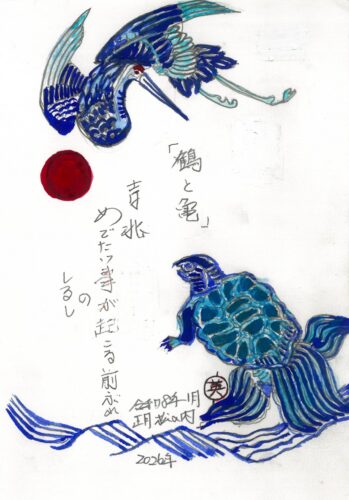 「鶴と亀」
吉兆
めでたい事が起こる前ぶれ
の
しるし
令和8年1月
正月松の内
2026年
英